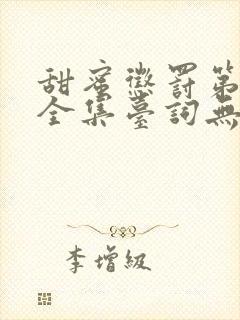 甜蜜懲罰第
全集臺詞無
李增級